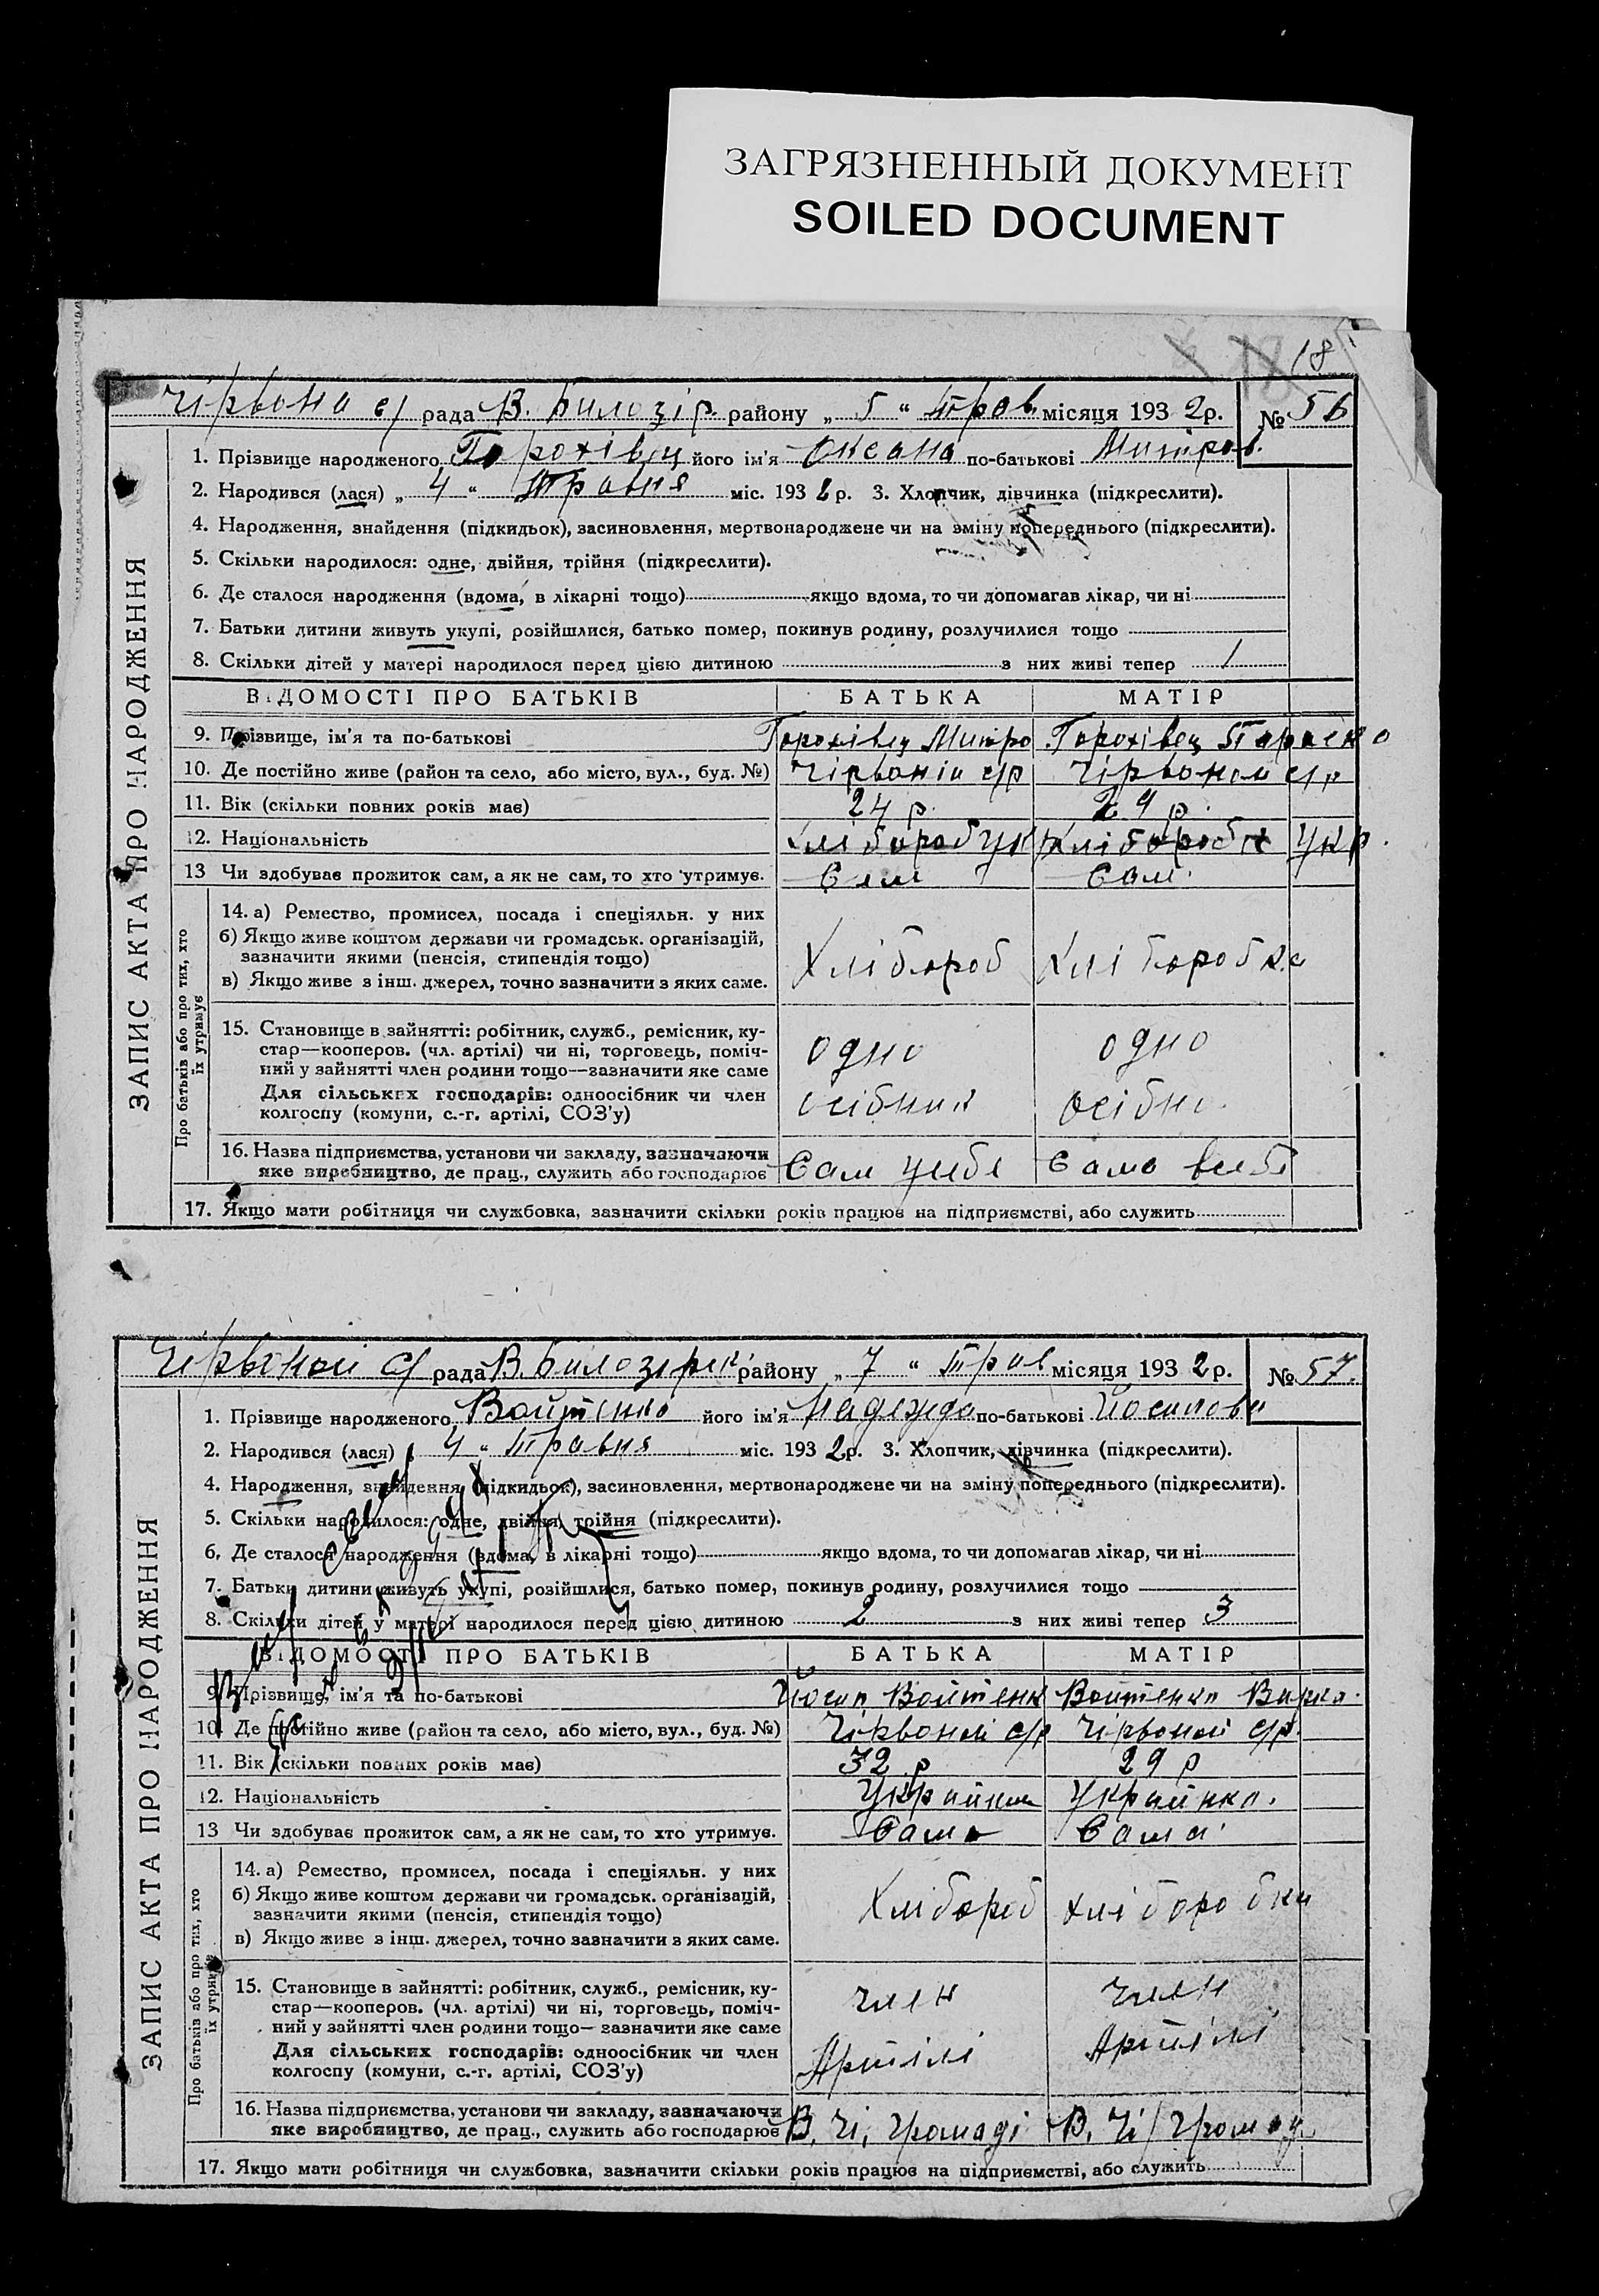 ЗАГРЯЗНЕННЫЙ ДОКУМЕНТ
SOILED DOCUMENT
18
Червона с/ рада В. Билозір. району „ 5 “ Трав. місяця 1932 р. № 56
ЗАПИС АКТА ПРО НАРОДЖЕННЯ
1. Прізвище народженого Горохівец його ім'я Оксана по-батькові Митров.
2. Народився (лася) „ 4 “ Травня міс. 1932 р. 3. Хлопчик, дівчинка (підкреслити).
4. Народження, знайдення (підкидьок), засиновлення, мертвонароджене чи на зміну попереднього (підкреслити).
5. Скільки народилося: одне, двійня, трійня (підкреслити).
6. Де сталося народження (вдома, в лікарні тощо) якщо вдома, то чи допомагав лікар, чи ні
7. Батьки дитини живуть укупі, розійшлися, батько помер, покинув родину, розлучилися тощо
8. Скільки дітей у матері народилося перед цією дитиною з них живі тепер 1
ВІДОМОСТІ ПРО БАТЬКІВ БАТЬКА МАТІР
9. Прізвище, ім'я та по-батькові Горохівец Митро Горохівец
10. Де постійно живе (район та село, або місто, вул., буд. №) Чірвоній с/р Чірвоной с/р
11. Вік (скільки повних років має) 24 р. 29 р.
12. Національність Хлібороб Укр Хліборобка Укр.
13 Чи здобуває прожиток сам, а як не сам, то хто утримує. Сам Сам.
Про батьків або про тих, хто їх утримує
14. а) Ремество, промисел, посада і спеціяльн. у них
б) Якщо живе коштом держави чи громадськ. організацій,
зазначити якими (пенсія, стипендія тощо) Хлібороб Хліборобка
в) Якщо живе з інш. джерел, точно зазначити з яких саме.
15. Становище в зайнятті: робітник, служб., ремісник, ку-
стар—кооперов. (чл. артілі) чи ні, торговець, поміч- одно одно
ний у зайнятті член родини тощо—зазначити яке саме
Для сільських господарів: одноосібник чи член
колгоспу (комуни, с.-г. артілі, СОЗ'у) осібник осібн.
16. Назва підприємства, установи чи закладу, зазначаючи
яке виробництво, де прац., служить або господарює Сам Сама
17. Якщо мати робітниця чи службовка, зазначити скільки років працює на підприємстві, або служить
Чірвоной с/ рада В. Билозірск. району „ 7 “ Трав місяця 1932 р. № 57.
ЗАПИС АКТА ПРО НАРОДЖЕННЯ
1. Прізвище народженого Войтенко його ім'я Надежда по-батькові Йосипова
2. Народився (лася) „ 4 “ Травня міс. 1932 р. 3. Хлопчик, дівчинка (підкреслити).
4. Народження, знайдення (підкидьок), засиновлення, мертвонароджене чи на зміну попереднього (підкреслити).
5. Скільки народилося: одне, двійня, трійня (підкреслити).
6. Де сталося народження (вдома, в лікарні тощо) якщо вдома, то чи допомагав лікар, чи ні
7. Батьки дитини живуть укупі, розійшлися, батько помер, покинув родину, розлучилися тощо
8. Скільки дітей у матері народилося перед цією дитиною 2 з них живі тепер 3
ВІДОМОСТІ ПРО БАТЬКІВ БАТЬКА МАТІР
9. Прізвище, ім'я та по-батькові Йосип Войтенк Войтенка
10. Де постійно живе (район та село, або місто, вул., буд. №) Чірвоной с/р Чірвоной с/р.
11. Вік (скільки повних років має) 32 р 29 р
12. Національність Українка.
13 Чи здобуває прожиток сам, а як не сам, то хто утримує. Сам Сама.
Про батьків або про тих, хто їх утримує
14. а) Ремество, промисел, посада і спеціяльн. у них
б) Якщо живе коштом держави чи громадськ. організацій,
зазначити якими (пенсія, стипендія тощо) Хлібороб хліборобка
в) Якщо живе з інш. джерел, точно зазначити з яких саме.
15. Становище в зайнятті: робітник, служб., ремісник, ку-
стар—кооперов. (чл. артілі) чи ні, торговець, поміч- член член
ний у зайнятті член родини тощо—зазначити яке саме
Для сільських господарів: одноосібник чи член
колгоспу (комуни, с.-г. артілі, СОЗ'у) Артілі Артілі
16. Назва підприємства, установи чи закладу, зазначаючи
яке виробництво, де прац., служить або господарює В. Чі, громаді В. Чі/ громад
17. Якщо мати робітниця чи службовка, зазначити скільки років працює на підприємстві, або служить